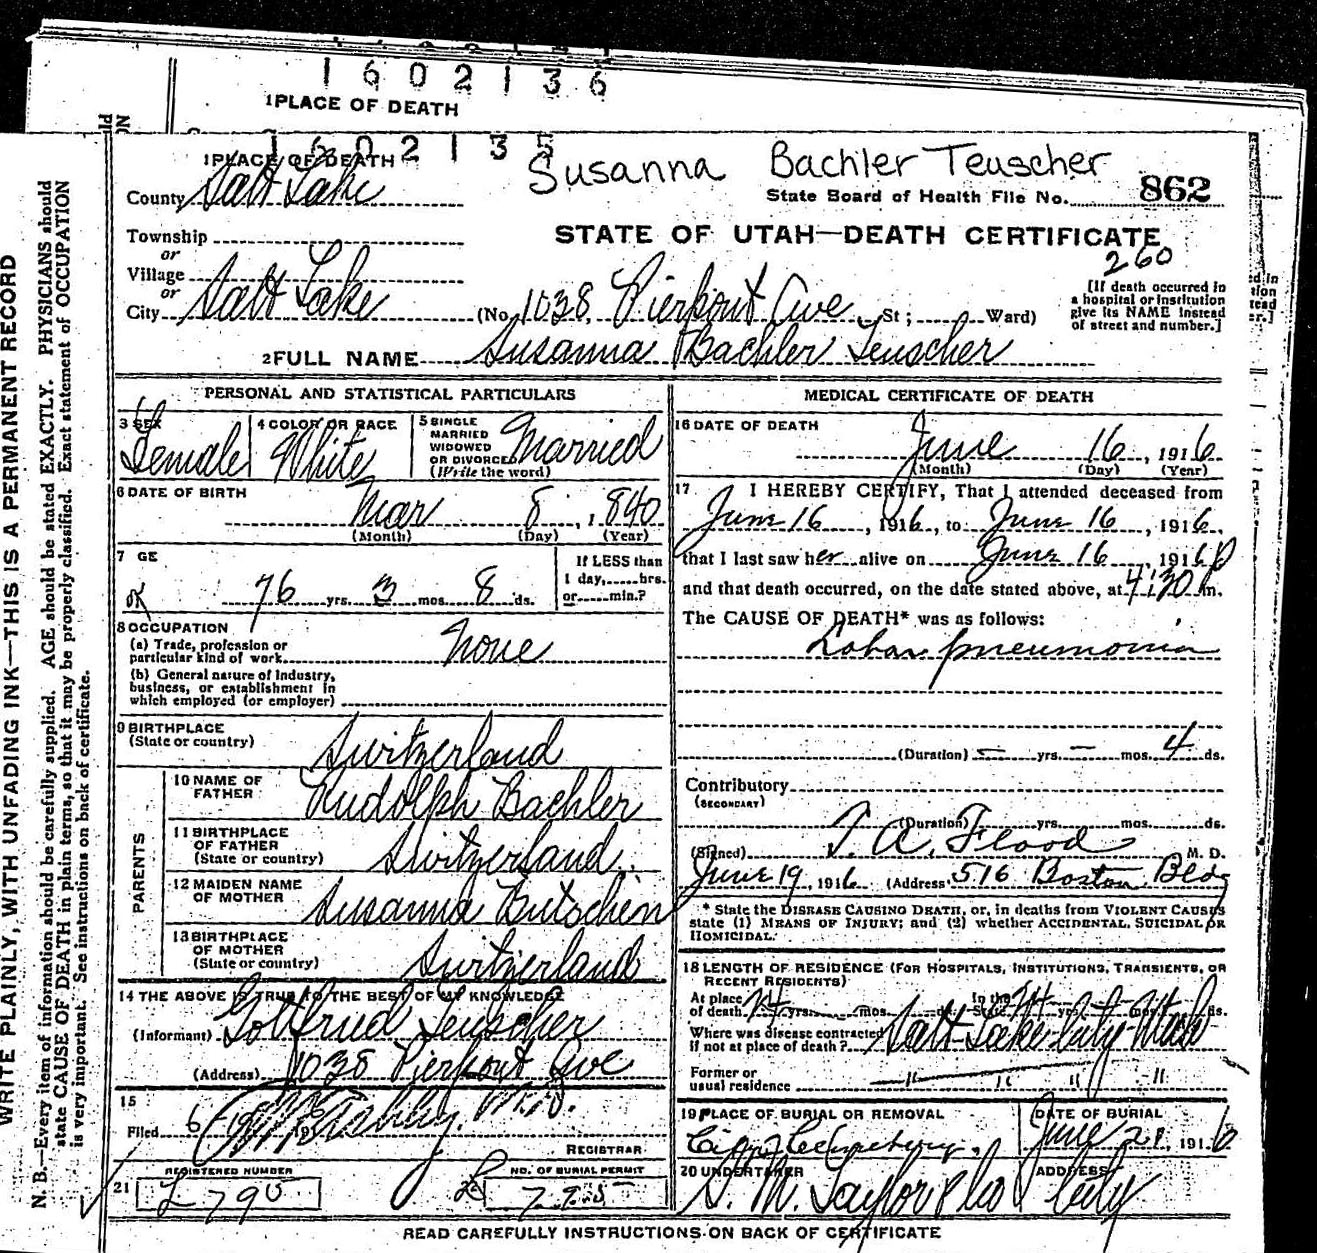 1 6 0 2 1 3 6
1 PLACE OF DEATH
1 6 0 2 1 3 5
1 PLACE OF DEATH
Susanna Bachler Teuscher
County Salt Lake
State Board of Health File No. 862
Township
STATE OF UTAH—DEATH CERTIFICATE
260
or
Village
or
City Salt Lake (No. 1038 Pierpont Ave St; Ward)
[If death occurred in
a hospital or institution
give its NAME instead
of street and number.]
2 FULL NAME Susanna Bachler Teuscher
PERSONAL AND STATISTICAL PARTICULARS
3 SEX Female
4 COLOR OR RACE White
5 SINGLE
MARRIED
WIDOWED
OR DIVORCED
(Write the word)
Married
6 DATE OF BIRTH
Mar 8, 1840
(Month) (Day) (Year)
7 GE
76 yrs. 3 mos. 8 ds.
If LESS than
1 day, hrs.
or min.?
8 OCCUPATION
(a) Trade, profession or
particular kind of work None
(b) General nature of Industry,
business, or establishment in
which employed (or employer)
9 BIRTHPLACE
(State or country) Switzerland
PARENTS
10 NAME OF
FATHER Rudolph Bachler
11 BIRTHPLACE
OF FATHER
(State or country) Switzerland
12 MAIDEN NAME
OF MOTHER Susanna
13 BIRTHPLACE
OF MOTHER
(State or country) Switzerland
14 THE ABOVE IS TRUE TO THE BEST OF MY KNOWLEDGE
(Informant) Gottfried Teuscher
(Address) 1038 Pierpont Ave
15
Filed 6 M.D.
REGISTRAR
21 REGISTERED NUMBER
L 795
NO. OF BURIAL PERMIT
MEDICAL CERTIFICATE OF DEATH
16 DATE OF DEATH
June 16, 1916
(Month) (Day) (Year)
17 I HEREBY CERTIFY, That I attended deceased from
June 16, 1916, to June 16, 1916,
that I last saw her alive on June 16, 1916
and that death occurred, on the date stated above, at 4:30 P m.
The CAUSE OF DEATH* was as follows:
Lobar pneumonia
(Duration) – yrs. – mos. 4 ds.
Contributory
(SECONDARY)
(Duration) yrs. mos. ds.
(Signed) T. A. Flood M. D.
June 19, 1916 (Address 516 Boston Bldg
* State the DISEASE CAUSING DEATH, or, in deaths from VIOLENT CAUSES
state (1) MEANS OF INJURY; and (2) whether ACCIDENTAL, SUICIDAL OR
HOMICIDAL.
18 LENGTH OF RESIDENCE (FOR HOSPITALS, INSTITUTIONS, TRANSIENTS, OR
RECENT RESIDENTS)
At place
of death yrs. mos. ds. In the
State yrs. mos. ds.
Where was disease contracted
if not at place of death? Salt Lake City Utah
Former or
usual residence " " " "
19 PLACE OF BURIAL OR REMOVAL
City Cemetery.
DATE OF BURIAL
June 21, 1916
20 UNDERTAKER
S. M. Taylor & Co
ADDRESS
City
READ CAREFULLY INSTRUCTIONS ON BACK OF CERTIFICATE
WRITE PLAINLY, WITH UNFADING INK—THIS IS A PERMANENT RECORD
N. B.—Every item of information should be carefully supplied. AGE should be stated EXACTLY. PHYSICIANS should
state CAUSE OF DEATH in plain terms, so that it may be properly classified. Exact statement of OCCUPATION
is very important. See instructions on back of certificate.